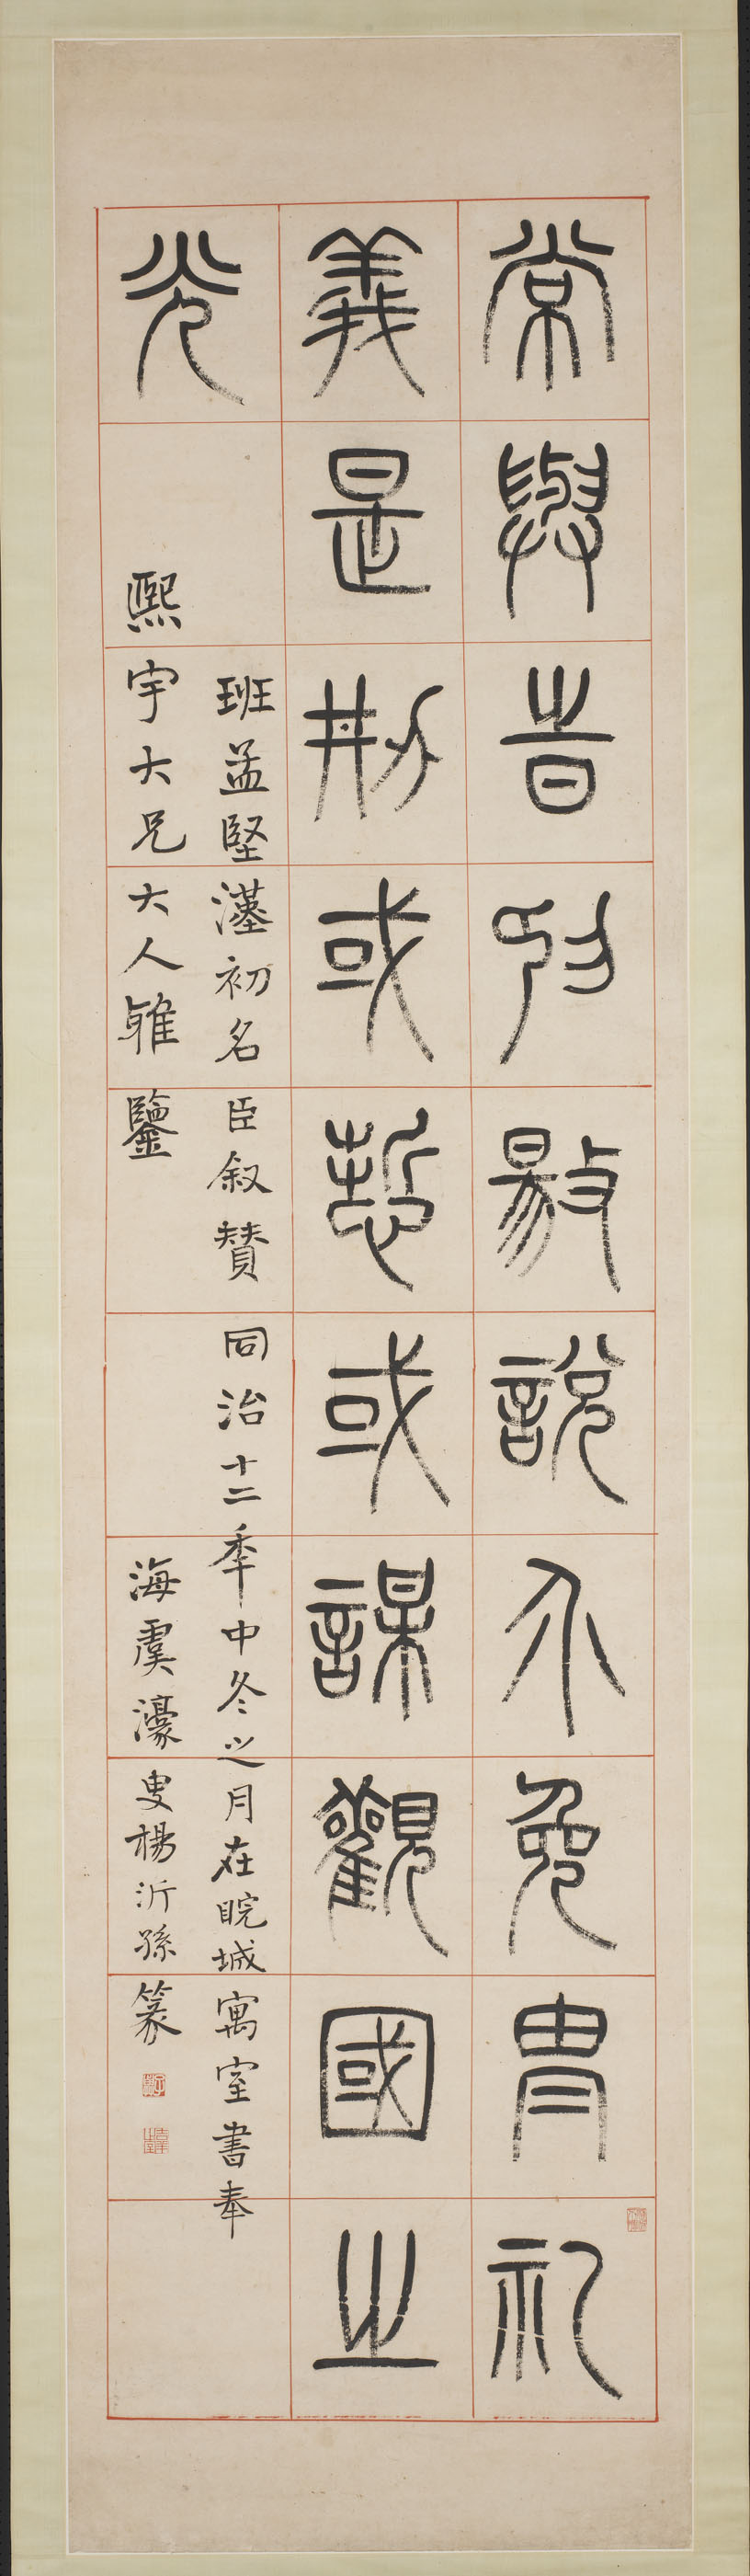 常與旹抑敭說介免冑礼
義是刱或悊或謀觀國之
光
班孟堅漢初名臣叙贊同治十二季中冬之月在睆城寓室書奉
熙宇大兄大人雅鑒
海虞濠叟楊沂孫篆